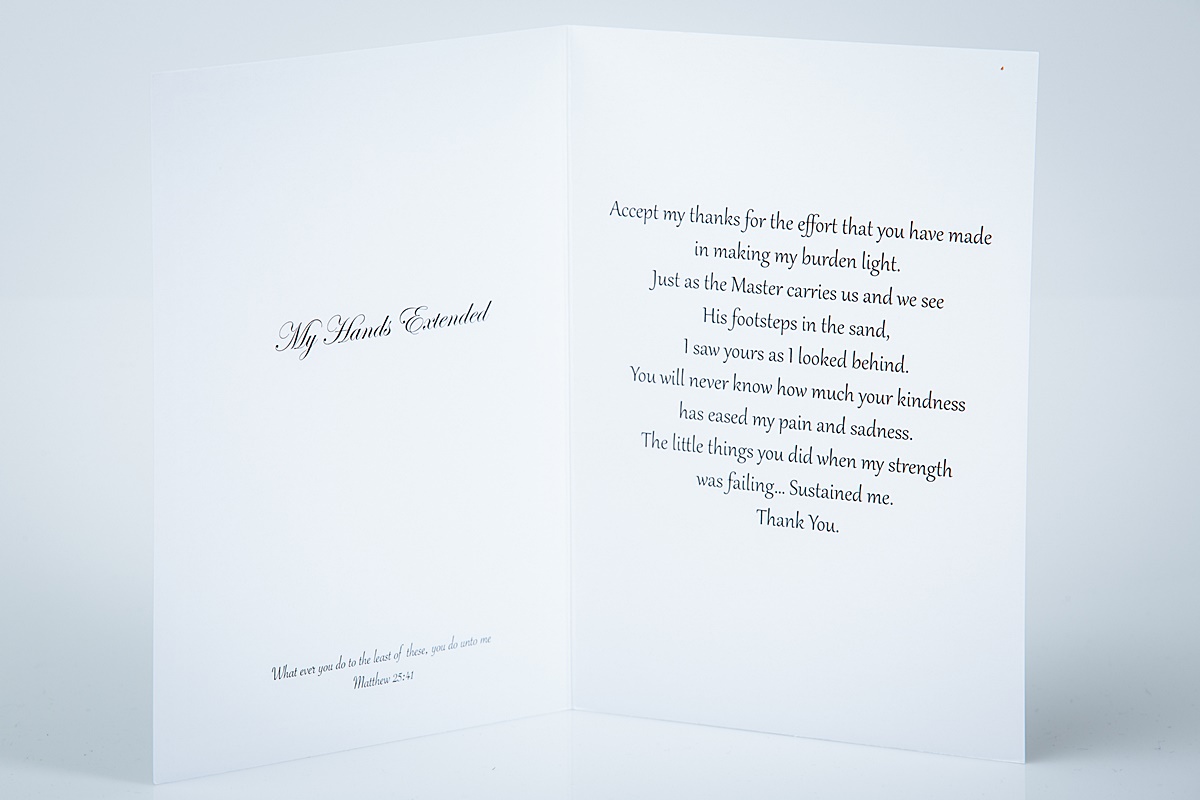 My Hands Extended
What ever you do to the least of these, you do unto me
Matthew 25:41
Accept my thanks for the effort that you have made
in making my burden light.
Just as the Master carries us and we see
His footsteps in the sand,
I saw yours as I looked behind.
You will never know how much your kindness
has eased my pain and sadness.
The little things you did when my strength
was failing... Sustained me.
Thank You.